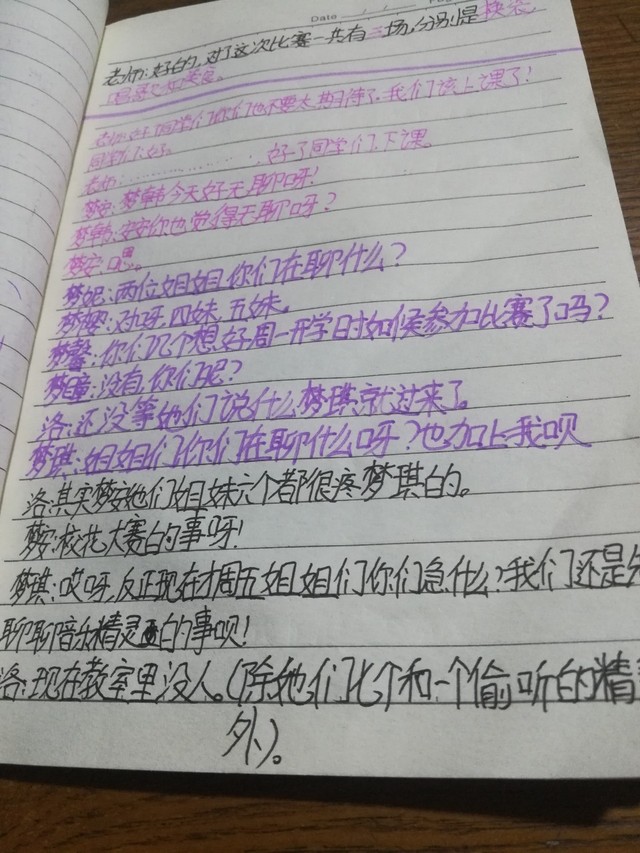 Date
老师:好的,对了这次比赛一共有三场,分别是
老师:好了同学们你们也不要太期待了,我们该上课了!
同学们:好。
老师:………………好了同学们,下课。
梦安:梦韩今天好无聊呀!
梦韩:安安你也觉得无聊呀?
梦安:嗯。
梦妮:两位姐姐,你们在聊什么?
梦樱:对呀,四妹,五妹。
梦馨:你们几个想好周一开学日时如候参加比赛了吗?
梦瞳:没有,你们呢?
洛:还没等她们说什么,梦琪就过来了。
梦琪:姐姐们,你们在聊什么呀?也加上我呗
洛:其实梦安她们姐妹六个都很疼梦琪的。
梦安:校花大赛的事呀!
梦琪:哎呀,反正现在才周五姐姐们你们急什么?我们还是
聊聊音乐精灵的事呗!
洛:现在教室里没人。(除她们七个和一个偷听的精
外)。